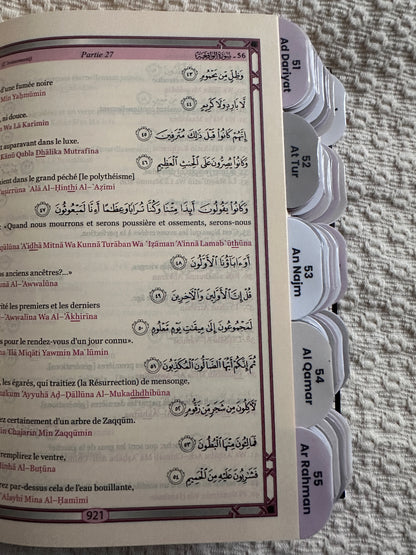 Partie 27
56 - سورة الواقعة
وَظِلٍّ مِّن يَحْمُومٍ ٤٣
d'une fumée noire
Min Yaĥmūmin
لَّا بَارِدٍ وَلَا كَرِيمٍ ٤٤
, ni douce.
Wa Lā Karīmin
إِنَّهُمْ كَانُوا۟ قَبْلَ ذَٰلِكَ مُتْرَفِينَ ٤٥
auparavant dans le luxe.
Kānū Qabla Dhālika Mutrafīna
وَكَانُوا۟ يُصِرُّونَ عَلَى ٱلْحِنثِ ٱلْعَظِيمِ ٤٦
dans le grand péché [le polythéisme]
'Alá Al-Ĥinthi Al-'Ažīmi
وَكَانُوا۟ يَقُولُونَ أَئِذَا مِتْنَا وَكُنَّا تُرَابًا وَعِظَٰمًا أَءِنَّا لَمَبْعُوثُونَ ٤٧
«Quand nous mourrons et serons poussière et ossements, serons-nous
'A'idhā Mitnā Wa Kunnā Turāban Wa 'Ižāman 'A'innā Lamab'ūthūna
أَوَءَابَآؤُنَا ٱلْأَوَّلُونَ ٤٨
anciens ancêtres?...»
Al-'Awwalūna
قُلْ إِنَّ ٱلْأَوَّلِينَ وَٱلْءَاخِرِينَ ٤٩
les premiers et les derniers
Al-'Awwalīna Wa Al-'Ākhirīna
لَمَجْمُوعُونَ إِلَىٰ مِيقَٰتِ يَوْمٍ مَّعْلُومٍ ٥٠
pour le rendez-vous d'un jour connu».
'Ilá Mīqāti Yawmin Ma'lūmin
ثُمَّ إِنَّكُمْ أَيُّهَا ٱلضَّآلُّونَ ٱلْمُكَذِّبُونَ ٥١
, les égarés, qui traitiez (la Résurrection) de mensonge,
'Ayyuhā Ađ-Đāllūna Al-Mukadhdhibūna
لَءَاكِلُونَ مِن شَجَرٍ مِّن زَقُّومٍ ٥٢
certainement d'un arbre de Zaqqūm.
Min Shajarin Min Zaqqūmin
فَمَالِـُٔونَ مِنْهَا ٱلْبُطُونَ ٥٣
remplirez le ventre,
Al-Buţūna
فَشَٰرِبُونَ عَلَيْهِ مِنَ ٱلْحَمِيمِ ٥٤
par-dessus cela de l'eau bouillante,
'Alayhi Mina Al-Ĥamīmi
921
51
Ad Dariyat
52
At Tur
53
An Najm
54
Al Qamar
55
Ar Rahman